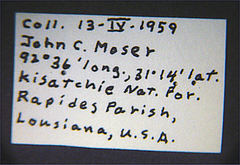 Coll. 13-IV-1959
John C. Moser
92°36' long., 31°14' lat.
Kisatchie Nat. For.
Rapides Parish,
Lousiana, U.S.A.